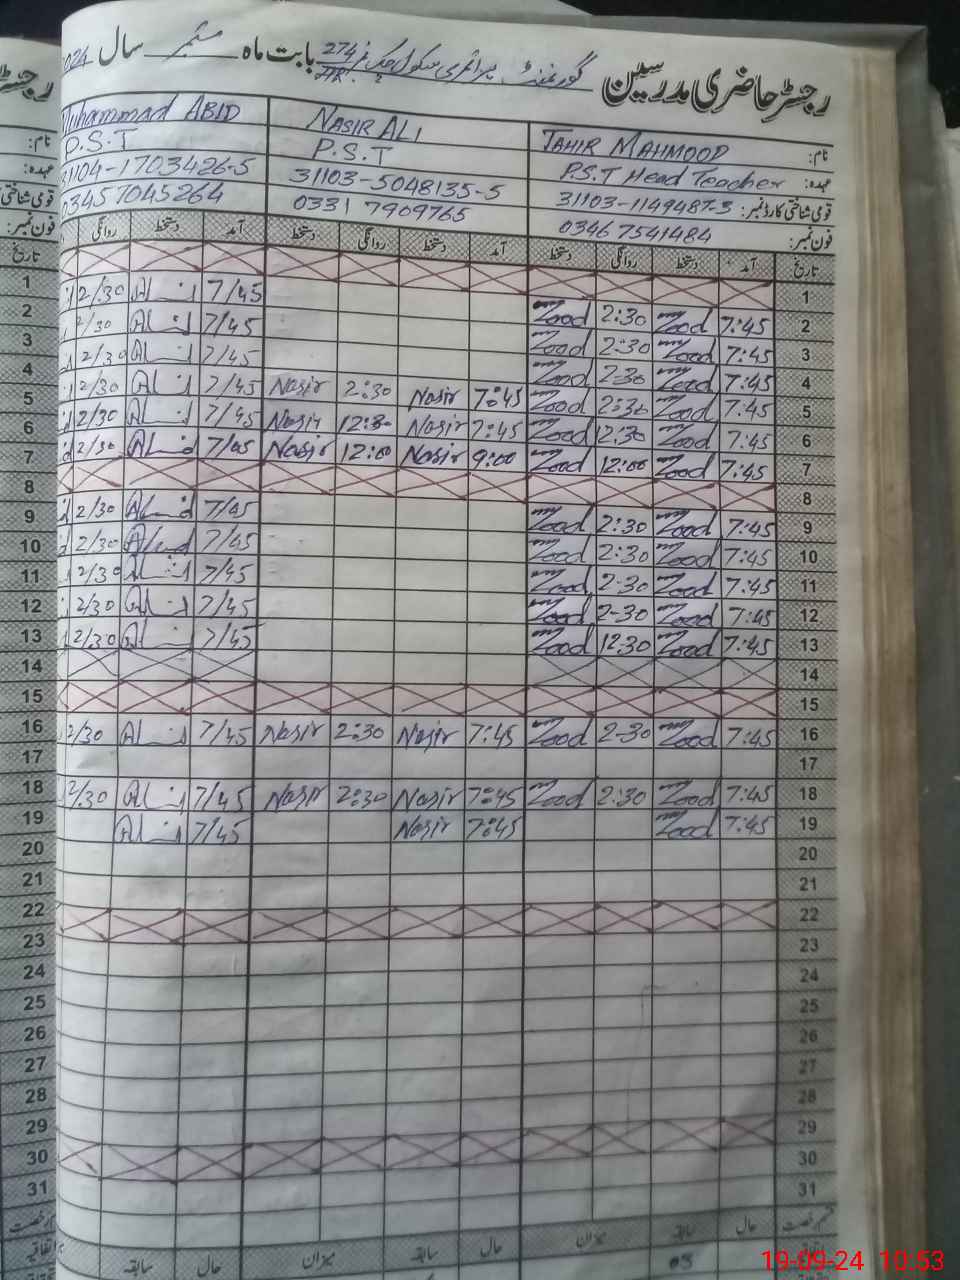 رجسٹر حاضری مدرسین گورنمنٹ پرائمری سکول چک نمبر 274/HR بابت ماہ ستمبر سال 2024
نام: TAHIR MAHMOOD NASIR ALI Muhammad ABID
عہدہ: P.S.T Head Teacher P.S.T P.S.T
قومی شناختی کارڈ نمبر: 31103-1149487-3 31103-5048135-5 31104-1703426-5
فون نمبر: 0346 7541484 0331 7909765 03457045264
تاریخ آمد دستخط روانگی دستخط آمد دستخط روانگی دستخط آمد دستخط روانگی
1
2 7:45 Zood 2:30 7/45 2/30
3 7:45 Zood 2:30 7/45 2/30
4 7:45 Zood 2:30 Zood 7/45 2/30
5 7:45 Zood 2:30 Zood 7:45 Nasir 2:30 Nasir 7/45 2/30
6 7:45 Zood 12:30 Zood 7:45 Nasir 12:30 Nasir 7/45 2/30
7 7:45 Zood 12:00 Zood 9:00 Nasir 12:00 Nasir 7/45 2/30
8
9 7:45 Zood 2:30 Zood 7/45 2/30
10 7:45 Zood 2:30 Zood 7/45 2/30
11 7:45 Zood 2-30 Zood 7/45 2/30
12 7:45 Zood 2-30 Zood 7/45 2/30
13 7:45 Zood 12:30 Zood 7/45 2/30
14
15
16 7:45 Zood 2-30 Zood 7:45 Nasir 2:30 Nasir 7/45 2/30
17
18 7:45 Zood 2:30 Zood 7:45 Nasir 2:30 Nasir 7/45 2/30
19 7:45 Zood 7:45 Nasir 7/45
20
21
22
23
24
25
26
27
28
29
30
31
حال سابقہ میزان حال سابقہ میزان حال سابقہ
19-09-24 10:53